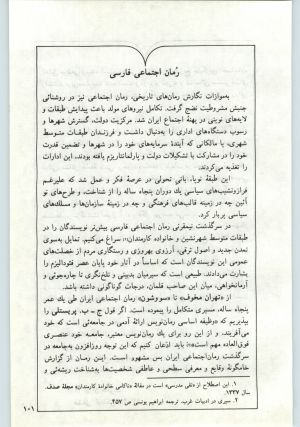 رُمان اجتماعی فارسی
به‌موازات نگارش رمان‌های تاریخی، رمان اجتماعی نیز در روشنائی
جنبش مشروطیت نضج گرفت. تکامل نیروهای مولد باعث پیدایش طبقات و
لایه‌های نوینی در پهنهٔ اجتماع ایران شد. مرکزیت دولت، گسترش شهرها و
رسوب دستگاه‌های اداری را به‌دنبال داشت و فرزندان طبقات متوسط
شهری، با مالکانی که آیندهٔ سرمایه‌های خود را در شهرها و تضمین قدرت
خود را در مشارکت با تشکیلات دولت و پارلمانتاریزم یافته بودند، این ادارات
را تغذیه می‌کردند.
این طبقهٔ نوپا، بانی تحولی در عرصهٔ فکر و عمل شد که علیرغم
فرازونشیب‌های سیاسی یك دوران پنجاه ساله را شناخت، و طرح‌های نو
آئین چه در زمینه قالب‌های فرهنگی و چه در زمینهٔ سازمان‌ها و مسلك‌های
سیاسی پربار کرد.
در سرگذشت نیمقرنی رمان اجتماعی فارسی بیش‌تر نویسندگان را در
طبقات متوسط شهرنشین و خانوادهٔ کارمندان۱ سراغ می‌کنیم. تمایل به‌سوی
تمدن جدید و اصول ترقی، آرزوی بهروزی و رستگاری مردم از خصلت‌های
عمومی این نویسندگان است که اساساً در آثار خود پایان عصر فئودالیزم را
بشارت می‌دادند. طبیعی است که سیرمیان بدبینی و تلخ‌نگری تا چاره‌جوئی و
آرمانخواهی، میان این صاحب قلمان، درجات گوناگونی داشته باشد.
از «تهران مخوف» تا «سووشون» رمان اجتماعی ایران طی یك عمر
پنجاه ساله، مسیری متکامل را پیموده است. اگر قول ج ـ ب. پریستلی را
بپذیریم که «وظیفه اساسی رمان‌نویس ارائهٔ آدمی در جامعه‌ئی است که خود
می‌آفریند، و از این رو برای یك رمان‌نویس معتبر، جامعه خود عنصری
فوق‌العاده مهم است»۲ باید اذعان کنیم که این توجه روزافزون به‌جامعه در
سرگذشت رمان‌اجتماعی ایران بس مشهود است. این رمان از گزارش
خامگونهٔ وقایع و معرفی سطحی و عاطفی شخصیت‌ها به‌شناخت ریشه‌ئی و
۱. این اصطلاح از «تقی مدرسی» است در مقالهٔ «ناکامی خانوادهٔ کارمندان» مجلهٔ صدف.
سال ۱۳۳۷.
۲. سیری در ادبیات غرب. ترجمه ابراهیم یونسی ص ۴۵۷.
۱۰۱